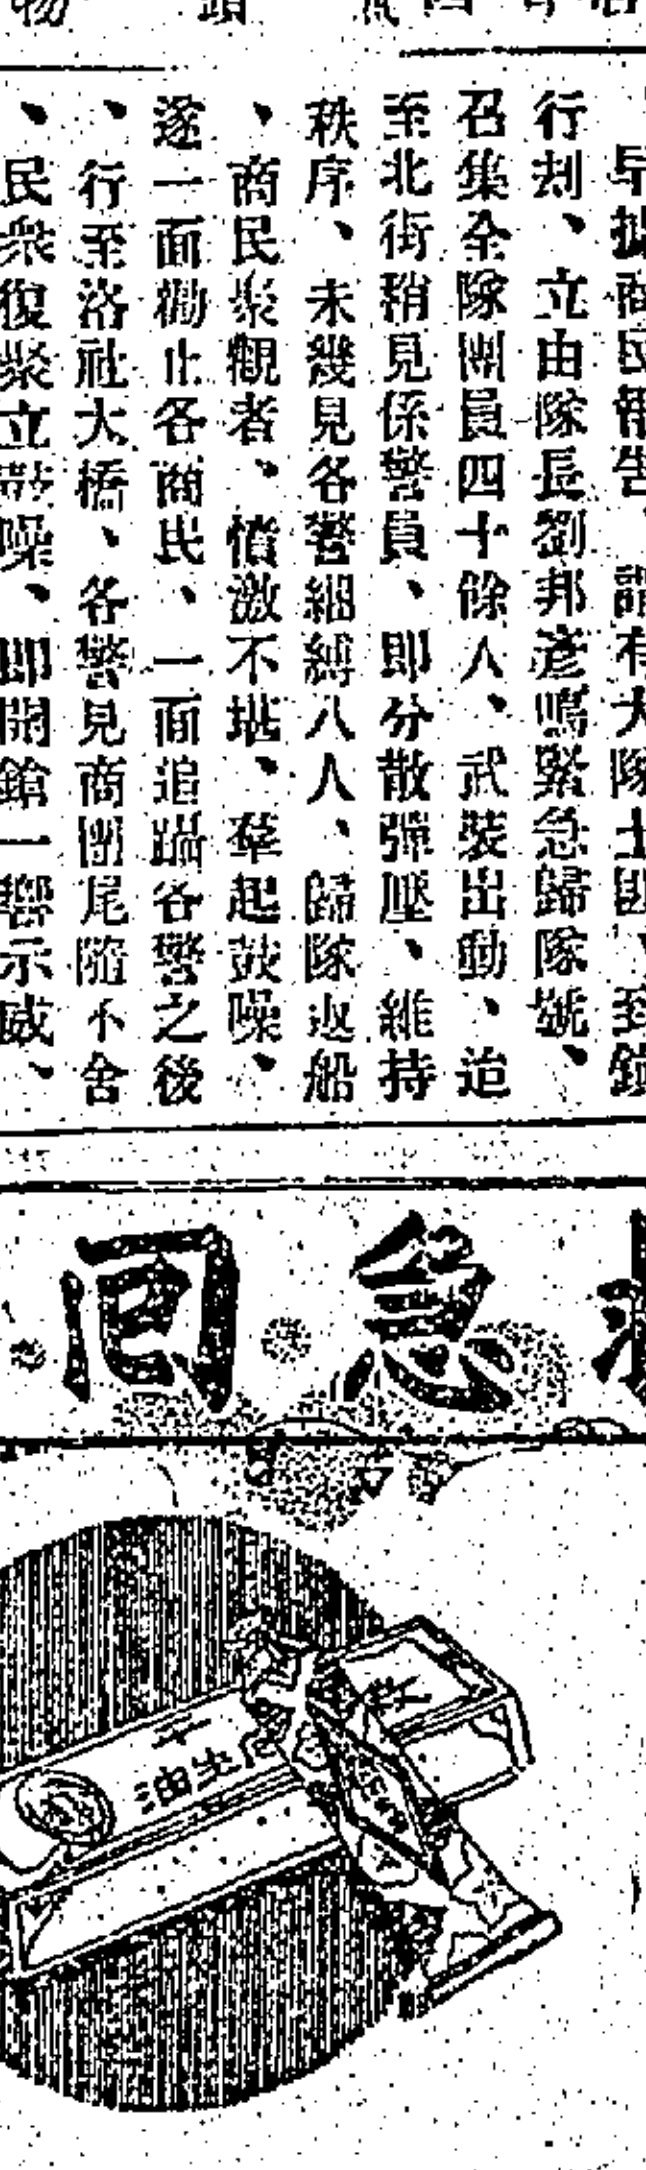 早據商民報告、謂有大隊土匪、到鎮
行刦、立由隊長劉邦彥鳴緊急歸隊號、
召集全隊團員四十餘人、武裝出動、迨
至北街稍見係警員、即分散彈壓、維持
秩序、未幾見各警綑縛八人、歸隊返船
、商民聚觀者、憤激不堪、羣起鼓噪、
遂一面勸止各商民、一面追躡各警之後
、行至洛社大橋、各警見商團尾隨不舍
、民衆復聚立鼓噪、即開鎗一響示威、
急回
油